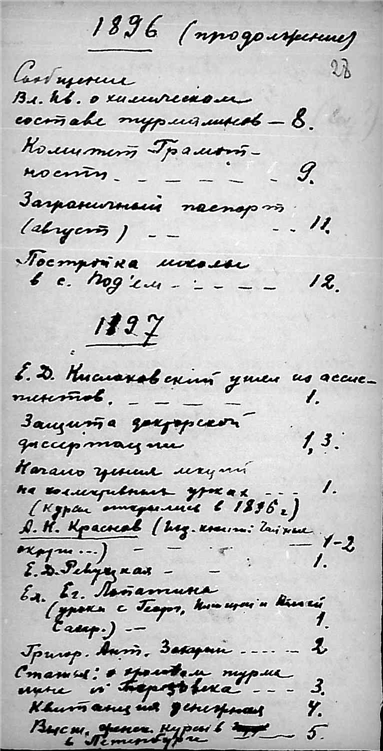 1896 (продолжение)
28
Сообщение
Вл. Ив. о химическом
составе турмалинов – 8.
Комитет Грамот-
ности – – – – – 9.
Заграничный паспорт
(август) – – – – 11.
Постройка школы
в с. Под'ем – – – – 12.
1897
Е. Д. Кислаковский ушел из ассис-
тентов. – – – – 1.
Защита докторской
диссертации 1, 3.
Начало чтения лекций
на коллективных уроках – – – 1.
(Курсы открылись в 1896 г)
А. Н. Краснов (изд. книги: Чайные
округи...) – – – 1-2
Е. Д. Ревуцкая – – – 1.
Ел. Ег. Лопатина
(уроки с Георг,
1.
Григор. Ант. Захарьин – – – 2
Статья: о розовом турма
лине из – – – 3.
Квитанция денежная 4.
Высш. женск. курсы в – – – 5.
в Петербурге